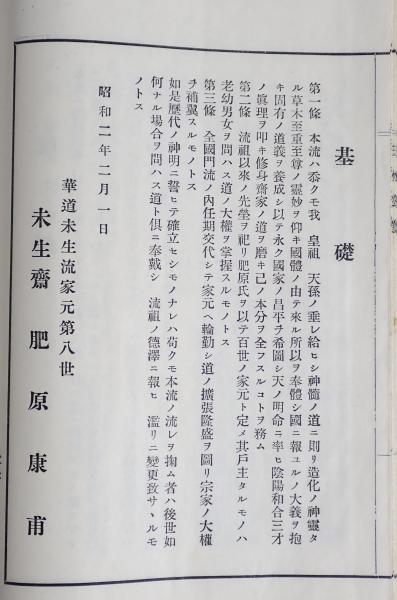 基礎
第一條　本流ハ忝クモ我　皇祖　天孫ノ垂レ給ヒシ神髓ノ道ニ則リ造化ノ神靈タ
ル草木至重至尊ノ靈妙ヲ仰キ國體ノ由テ來ル所以ヲ奉體シ國ニ報ユルノ大義ヲ抱
キ固有ノ道義ヲ養成シ以テ永ク國家ノ昌平ヲ希圖シ天ノ明命ニ率ヒ陰陽和合三才
ノ眞理ヲ叩キ修身齋家ノ道ヲ磨キ己ノ本分ヲ全フスルコトヲ務ム
第二條　流祖以來ノ先塋ヲ祀リ肥原氏ヲ以テ百世ノ家元ト定メ其戶主タルモノハ
老幼男女ヲ問ハス道ノ大權ヲ掌握スルモノトス
第三條　全國門流ノ內任期交代シテ家元ヘ輪勤シ道ノ擴張隆盛ヲ圖リ宗家ノ大權
ヲ補翼スルモノトス
如是歷代ノ神明ニ誓ヒテ確立セシモノナレハ苟クモ本流ノ流レヲ掬ム者ハ後世如
何ナル場合ヲ問ハス道ト俱ニ奉戴シ　流祖ノ德澤ニ報ヒ　濫リニ變更致サヽルモ
ノトス
昭和二年二月一日
華道未生流家元第八世
未生齋　肥原康甫